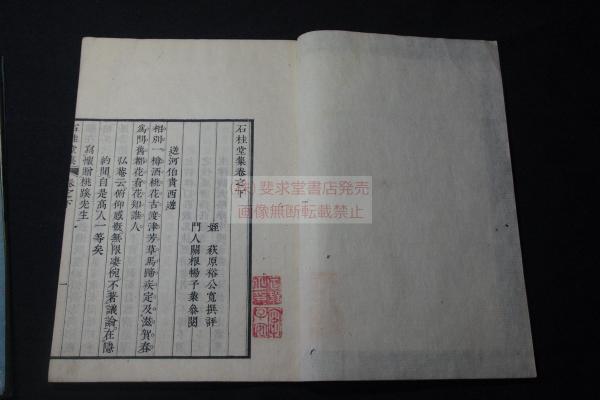 石桂堂集卷之下
姪 萩原裕公寬撰評
門人關根暢予業參閱
送河伯貴西遊
相別一樽酒桃花古渡津芳草馬蹄疾定及滋賀春
爲問舊都花看花知誰人
弘菴云俯仰感慨無限凄惋不著議論在隱
約間自是高人一等矣
寫懷贈桃蹊先生
石桂堂集 卷之下
一
㈱斐求堂書店発売
画像無断転載禁止